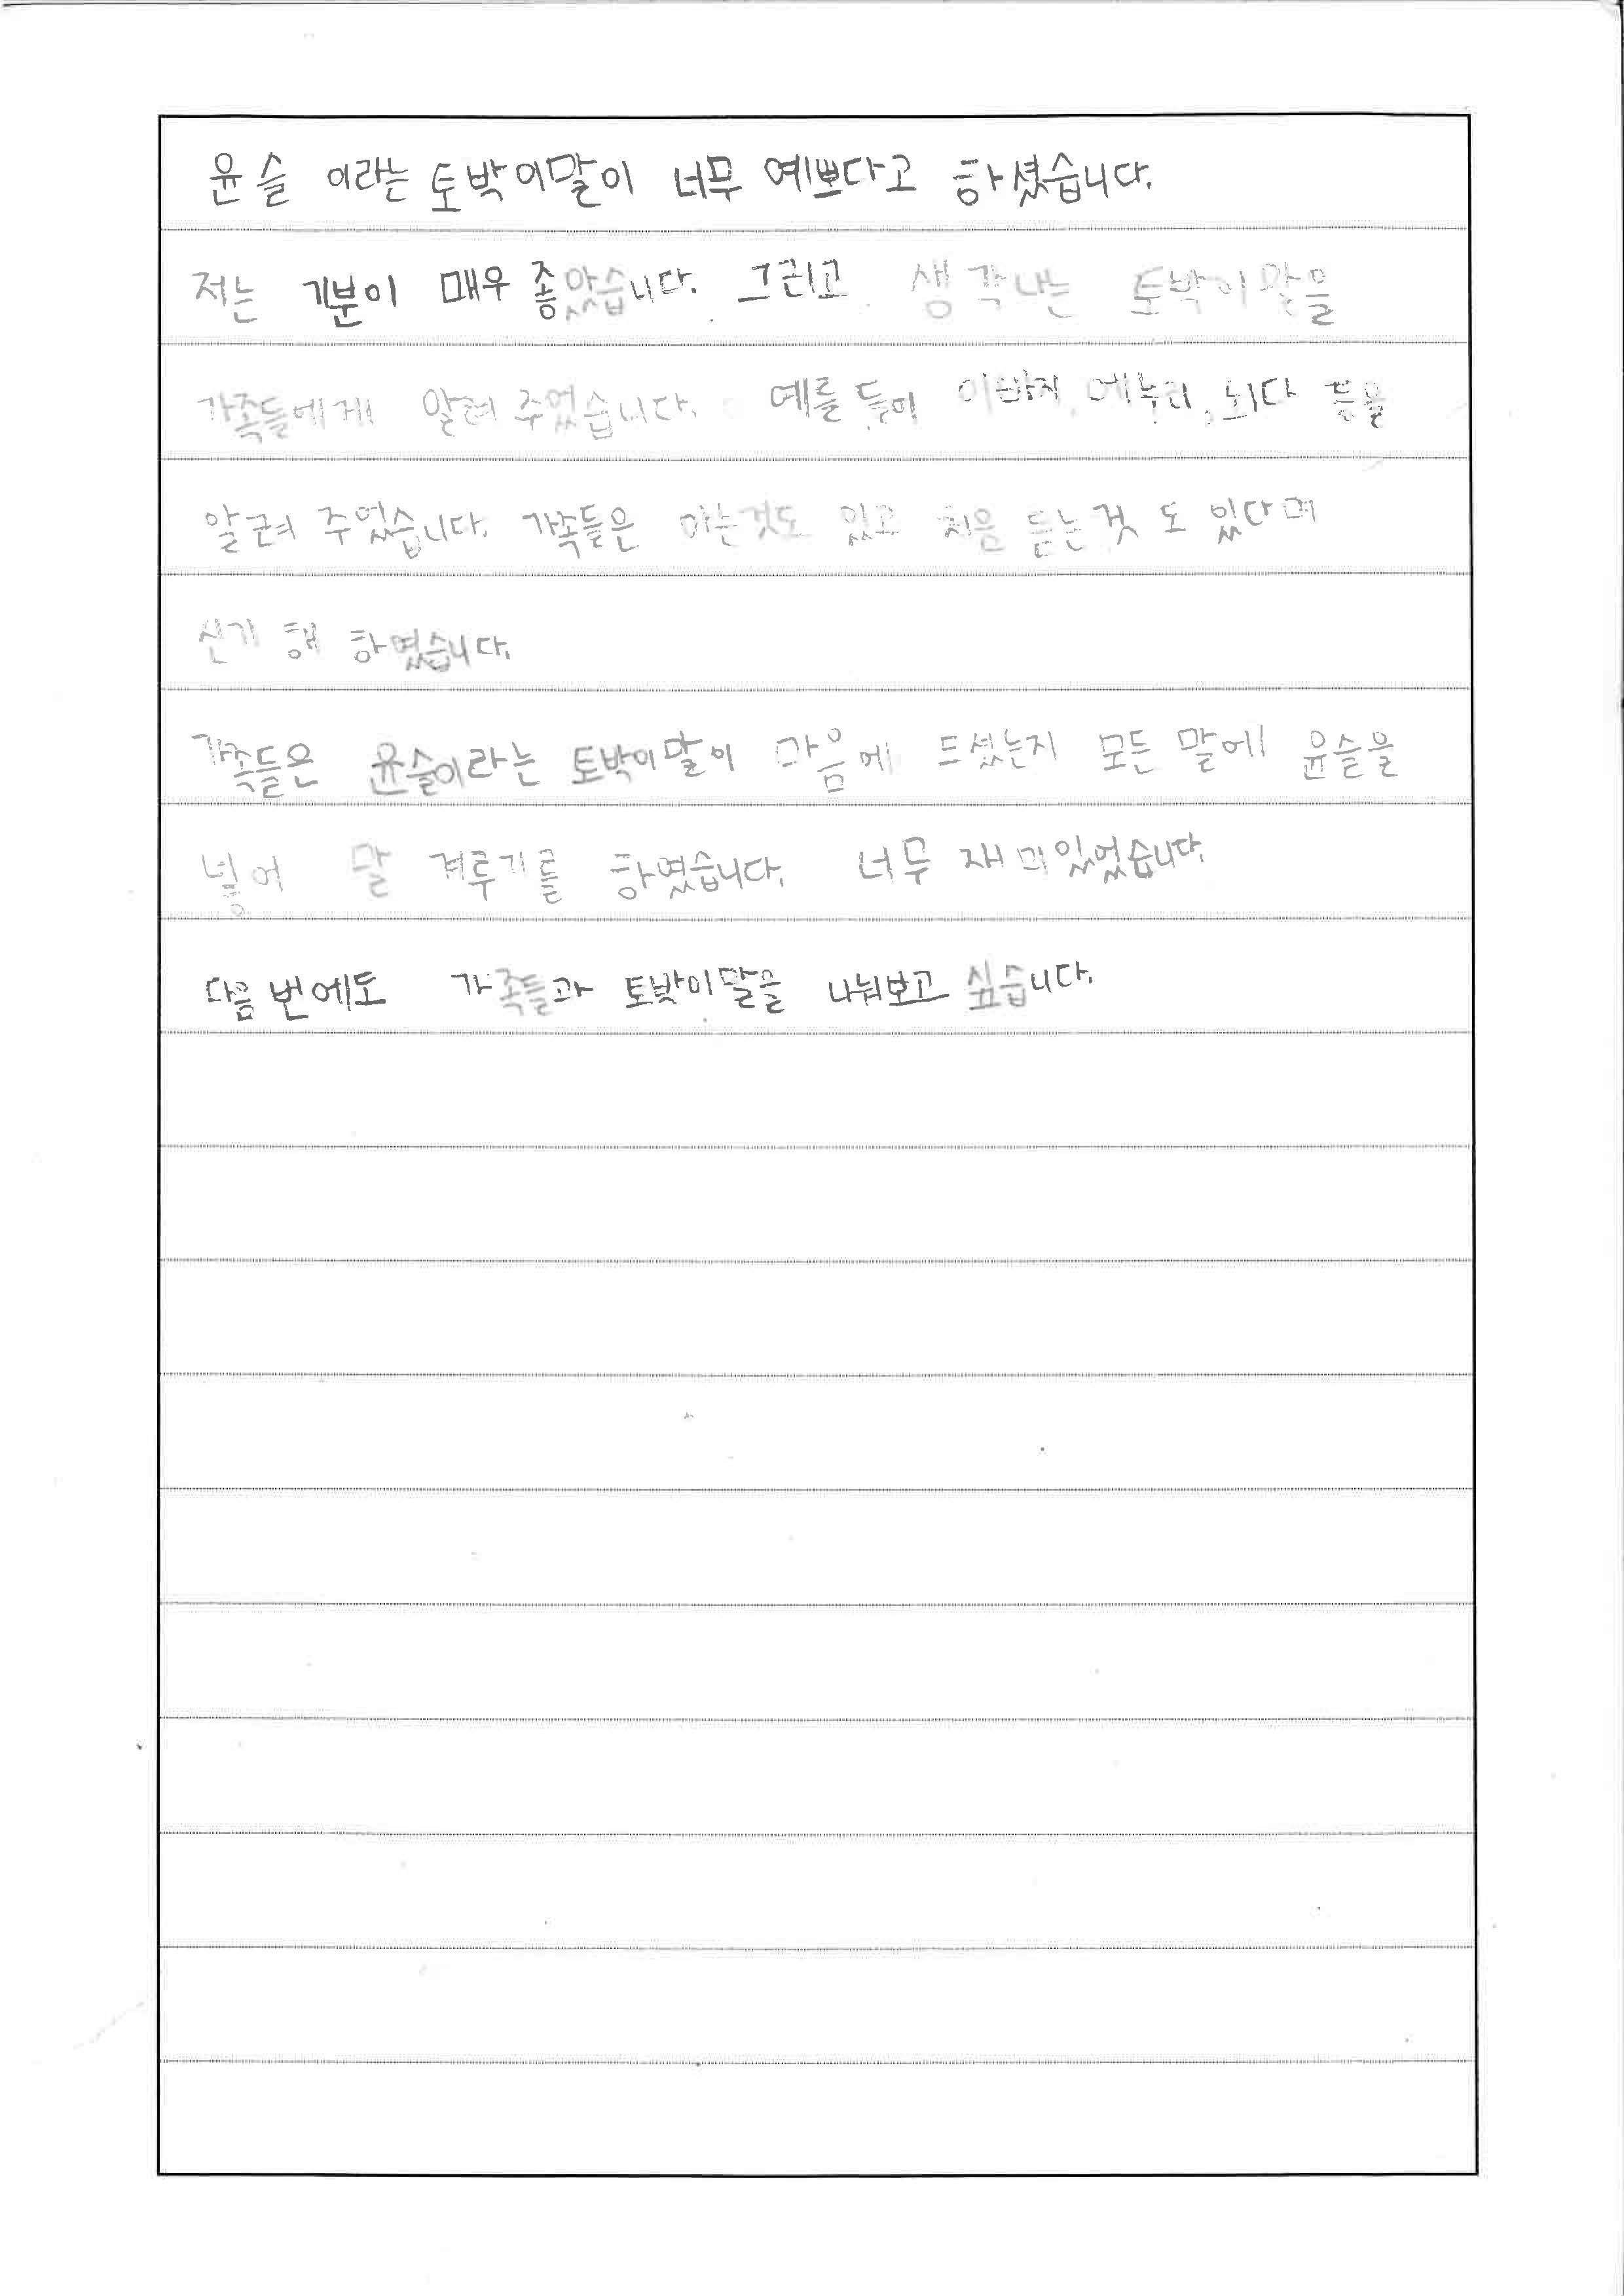 윤슬 이라는 토박이말이 너무 예쁘다고 하셨습니다.
저는 기분이 매우 좋았습니다. 그리고 생각나는 토박이말을
가족들에게 알려 주었습니다. 예를 들어 이바지, 에누리, 뵈다 등을
알려 주었습니다. 가족들은 아는것도 있고 처음 듣는것 도 있다며
신기 해 하였습니다.
가족들은 윤슬이라는 토박이말이 마음에 드셨는지 모든 말에 윤슬을
넣어 말 겨루기를 하였습니다. 너무 재미있었습니다.
다음 번에도 가족들과 토박이말을 나눠보고 싶습니다.